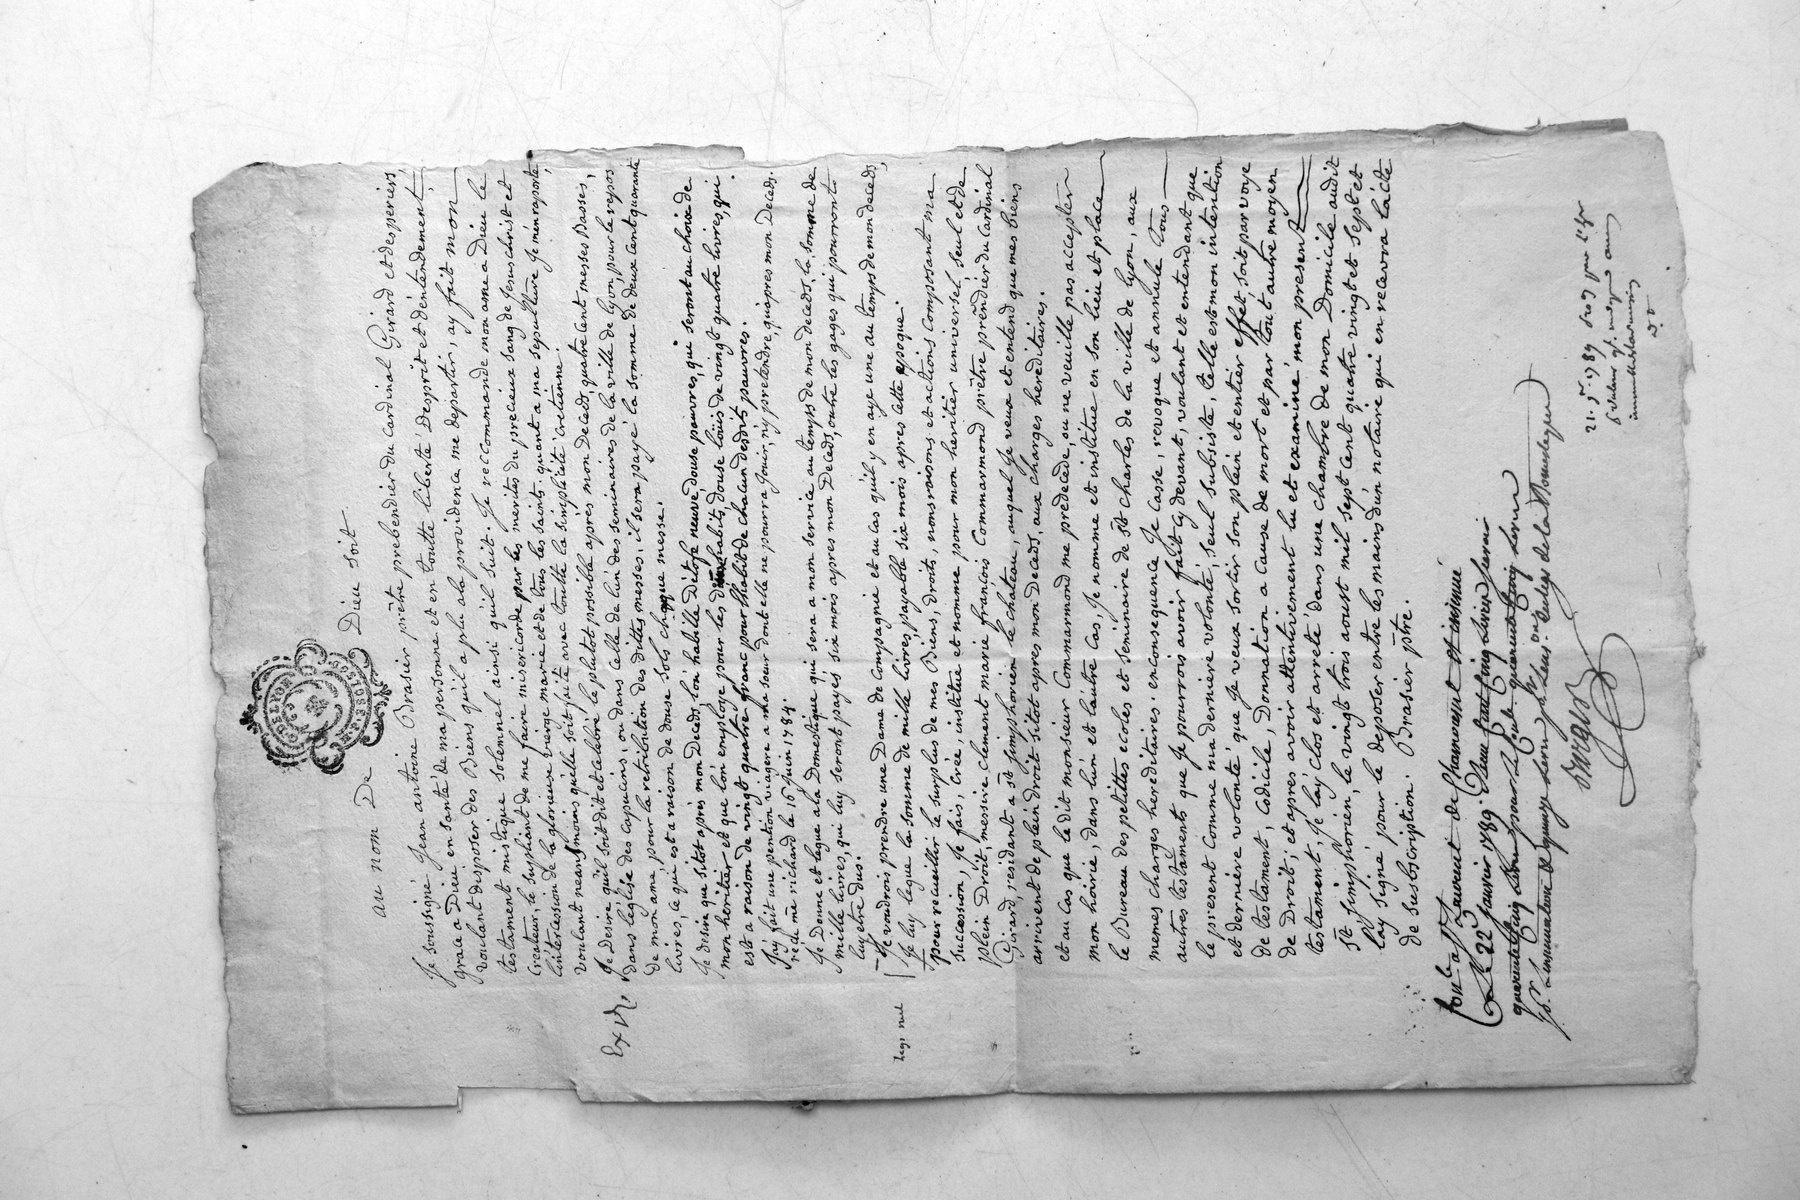 au nom De Dieu soit.
Je soussigné Jean antoine Brasier prêtre prebendier du Cardinal Girard et desperiers,
grace a Dieu en santé de ma personne et en toutte liberté Desprit et d'entendement,
voulant disposer des Biens qu'il a plu a la providence me departir, ay fait mon
testament mistique solemnel ainsi qu'il suit. Je reccommande mon ame a Dieu le
Createur, le supliant de me faire misericorde par les merites du precieux sang de Jesus christ et
l'intercession de la glorieuse vierge marie et de tous les saints. quant a ma sepulture Je m'en raporte,
voulant neansmoins quelle soit faite avec toutte la simplicité cretienne.
Je Desire qu'il soit dit et celebré le plutot possible apres mon Deceds, quatre cent messes Basses,
dans l'eglise des capucins, ou dans celle de l'un des seminaires de la ville de lyon, pour le repos
de mon ame, pour la retribution des dittes messes, il sera payé la somme de deux cent quarante
livres, ce qui est a raison de douse sols chaque messe.
Je desire que sitot après mon Deceds l'on habille D'etofe neuve douse pauvres, qui seront au choix de
mon heritier et que l'on employe pour les dits habits, douse loüis de vingt quatre livres, qui
est a raison de vingt quatre franc pour l'habit de chacun desdits pauvres.
J'ay fait une pention viagere a ma soeur dont elle ne pourra Jouir, n'y pretendre, qu'apres mon Deceds.
recu me richard le 16 Juin 1784.
Je Donne et legue a la Domestique qui sera a mon service au temps de mon deceds, la somme de
mille livres, qui luy seront payés six mois apres mon Deceds, outre les gages qui pourront
luy etre dus.
Ex
Je voudrois, prendre une Dame de Compagnie et au cas qu'il y en aye une au temps de mon deceds,
Je luy legue la somme de mille livres, payable six mois apres cette epoque.
Legs nul
pour recueillir le surplus de mes Biens, droits, noms raisons et actions composant ma
succession, Je fais, crée, institue et nomme, pour mon heritier universel, seul et de
plein Droit, messire clement marie françois Commarmond prêtre prebendier du Cardinal
Girard, residant a st simphorien le chateau, auquel Je veux et entend que mes biens
arrivent de plein droit sitot apres mon Deceds, aux charges hereditaires.
et au cas que le dit monsieur Commarmond me predecede, ou ne veuille pas accepter
mon hoirie, dans l'un et l'autre cas, Je nomme et institue en son lieu et place
le Bureau des petittes ecoles et seminaire de st charles de la ville de lyon, aux
memes charges hereditaires. en consequence Je casse, revoque et annule tous
autres testaments que Je pourrois avoir fait cy devant, voulant et entendant que
le present comme ma derniere volonté, seul subsiste, telle est mon intention
et derniere volonté que Je veux sortir son plein et entier effet, soit par voye
de testament, Codicile, Donnation a cause de mort et par tout autre moyen
de Droit, et apres avoir attentivement lu et examiné mon present
testament, Je l'ay clos et arreté dans une chambre de mon Domicile audit
st simphorien, le vingt trois aoust mil sept cent quatre vingt et sept et
l'ay signé pour le deposer entre les mains d'un notaire qui en recevra l'acte
de suscription. Brasier ptre.
Conlle a St Laurent de Chamousset et insinué
Le 22 Janvier 1789.